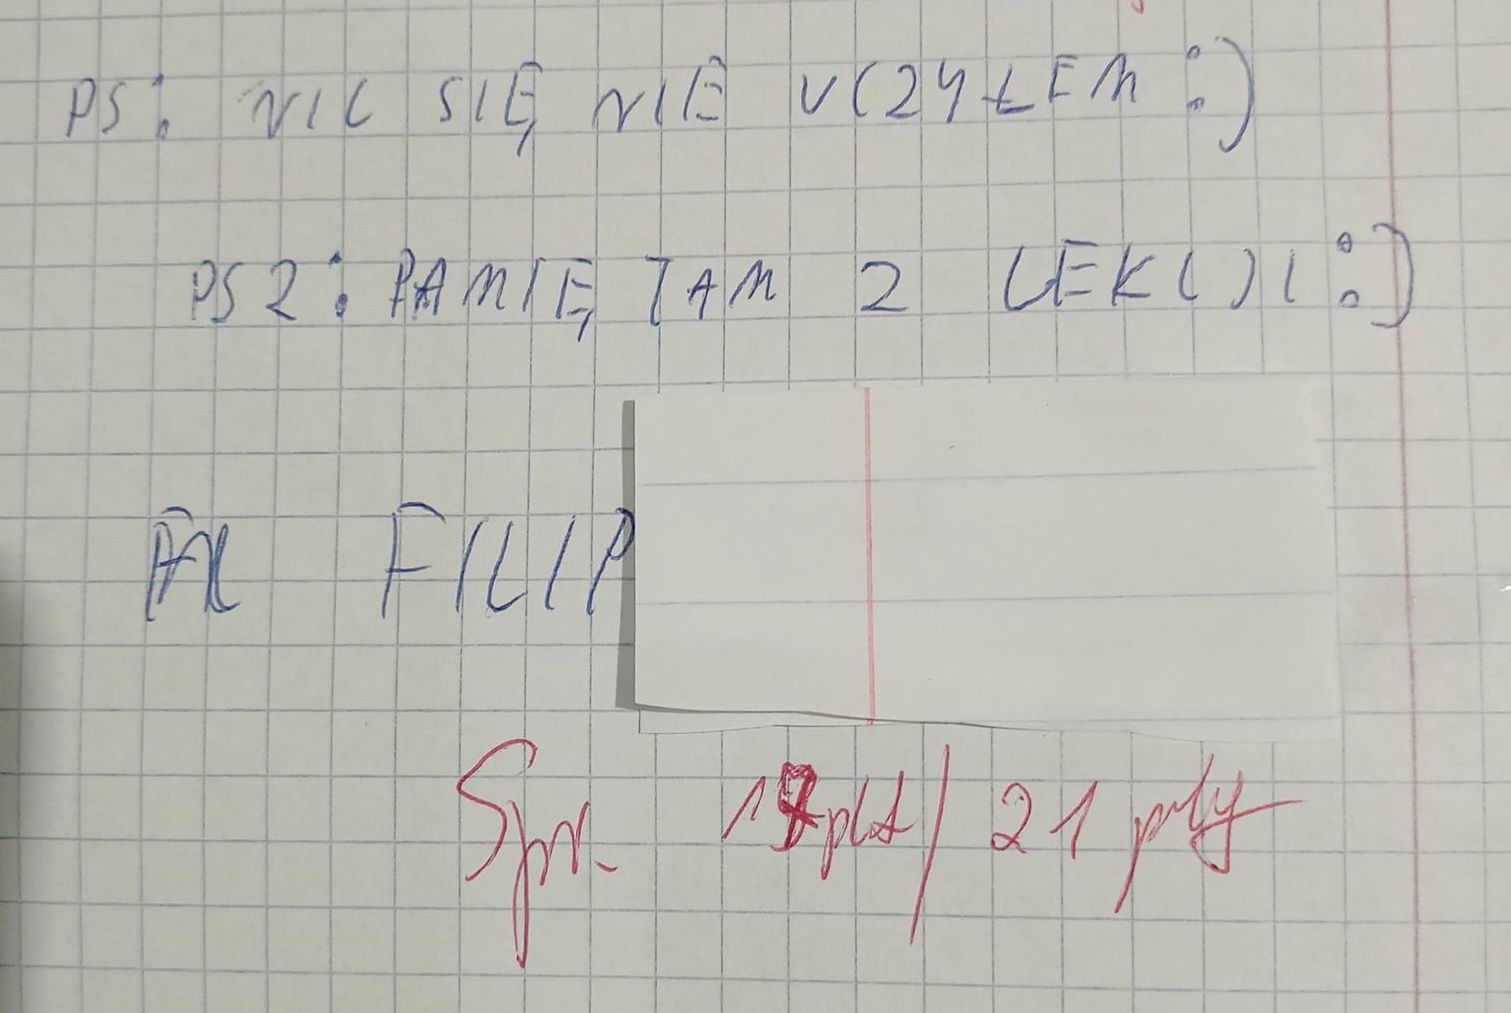 PS: NIC SIĘ NIE UCZYŁEM :)
PS2: PAMIĘTAM Z LEKCJI :)
FILIP
Spr. pkt / 21 pkty